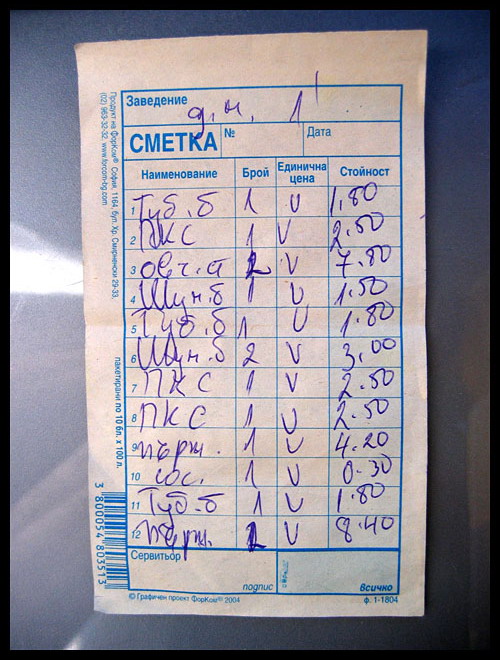 Заведение
д.н. 1
СМЕТКА № Дата
Наименование Брой Единична цена Стойност
1 Туб.б 1 V 1.80
2 ПКС 1 V 2.50
3 овч.с 2 V 7.80
4 Шун.б 1 V 1.50
5 Туб.б 1 V 1.80
6 Шун.б 2 V 3.00
7 ПКС 1 V 2.50
8 ПКС 1 V 2.50
9 пърж. 1 V 4.20
10 сос. 1 V 0.30
11 Туб.б 1 V 1.80
12 пърж. 2 V 8.40
Сервитьор
подпис всичко
© Графичен проект ФорКом® 2004 ф. 1-1804
Продукт на ФорКом® София, 1164, бул. Хр. Смирненски 29-33,
(02) 963-32-32, www.forcom-bg.com
пакетирани по 10 бл. x 100 л.
3 800054 803513